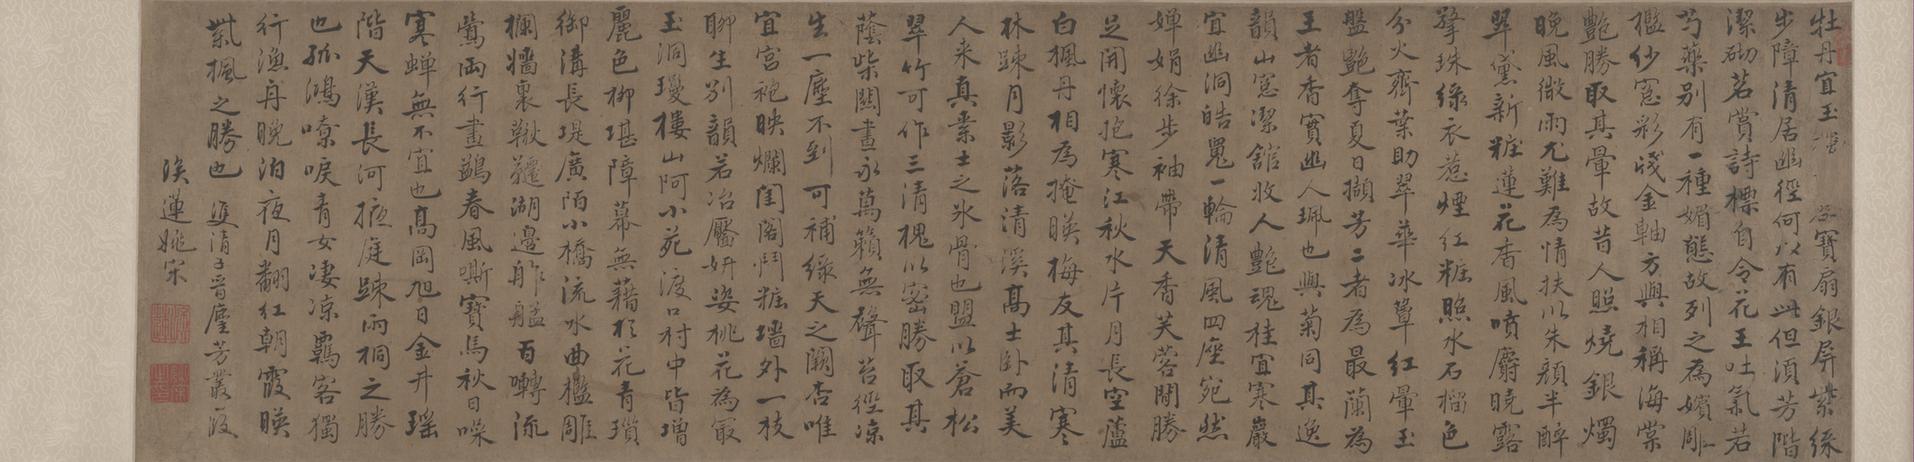 牡丹宜玉 寶扇銀屏紫絲
步障清居幽徑何以有此但須芳階
潔砌茗賞詩標自令花王吐氣若
芍藥別有一種媚態故列之為嬪雕
檻紗窗彩牋金軸方與相稱海棠
艷勝取其暈故昔人照燒銀燭
晚風微雨尤難為情扶以朱顏半醉
翠黛新粧蓮花香風噴麝曉露
擎珠綠衣惹煙紅粧照水石榴色
分火齊葉助翠華冰簟紅暈玉
盤艷奪夏日擷芳二者為最蘭為
王者香實幽人珮也與菊同其逸
韻山窗潔館收人艷魂桂宜寒巖
宜幽洞皓魄一輪清風四座宛然
嬋娟徐步袖帶天香芙蓉閒勝
足開懷抱寒江秋水片月長空蘆
白楓丹相為掩暎梅友其清寒
林疎月影落清溪高士卧而美
人来真素士之氷骨也盟以蒼松
翠竹可作三清槐以密勝取其
蔭柴關晝永萬籟無聲苔徑凉
生一塵不到可補綠天之闕杏唯
宜宮袍映爛閨閣鬥粧墻外一枝
聊生別韻若冶靨妍姿桃花為最
玉洞瓊樓山阿小苑渡口村中皆增
麗色柳堪障幕無藉於花青瑣
御溝長堤廣陌小橋流水曲檻雕
欄墻裏鞦韆湖邊舴艋百囀流
鶯兩行畫鷁春風嘶寶馬秋日噪
寒蟬無不宜也髙岡旭日金井瑤
階天漢長河掖庭踈雨桐之勝
也孤鴻嘹唳青女凄凉羈客獨
行漁舟晚泊夜月翻紅朝霞暎
紫楓之勝也 進清子晉麈芳叢渡
姚宋